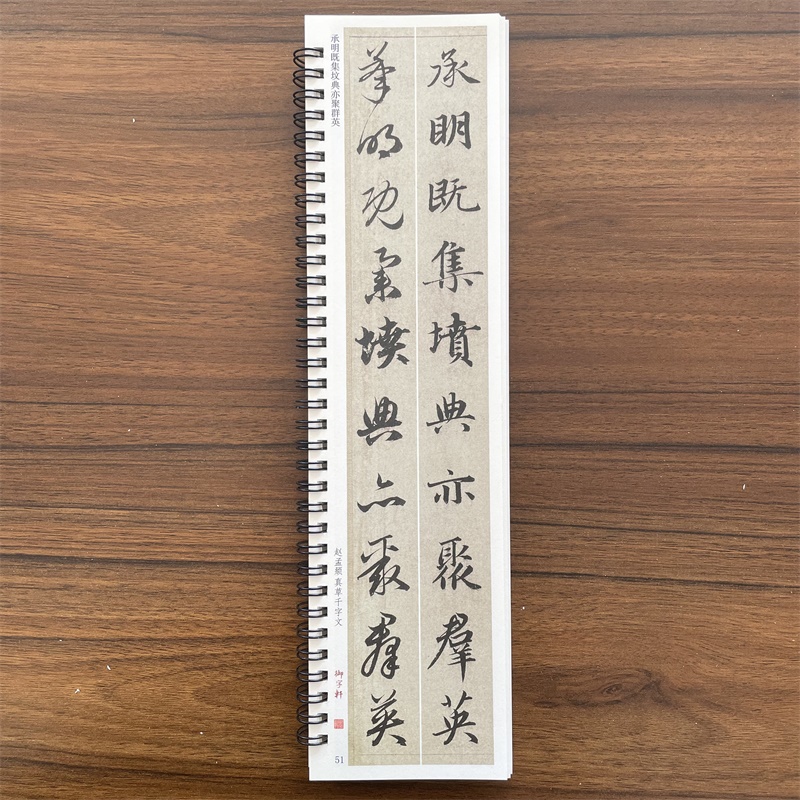 承明既集墳典亦聚羣英
承明既集墳典亦聚羣英
承明既集坟典亦聚群英
赵孟頫 真草千字文
御字軒
51